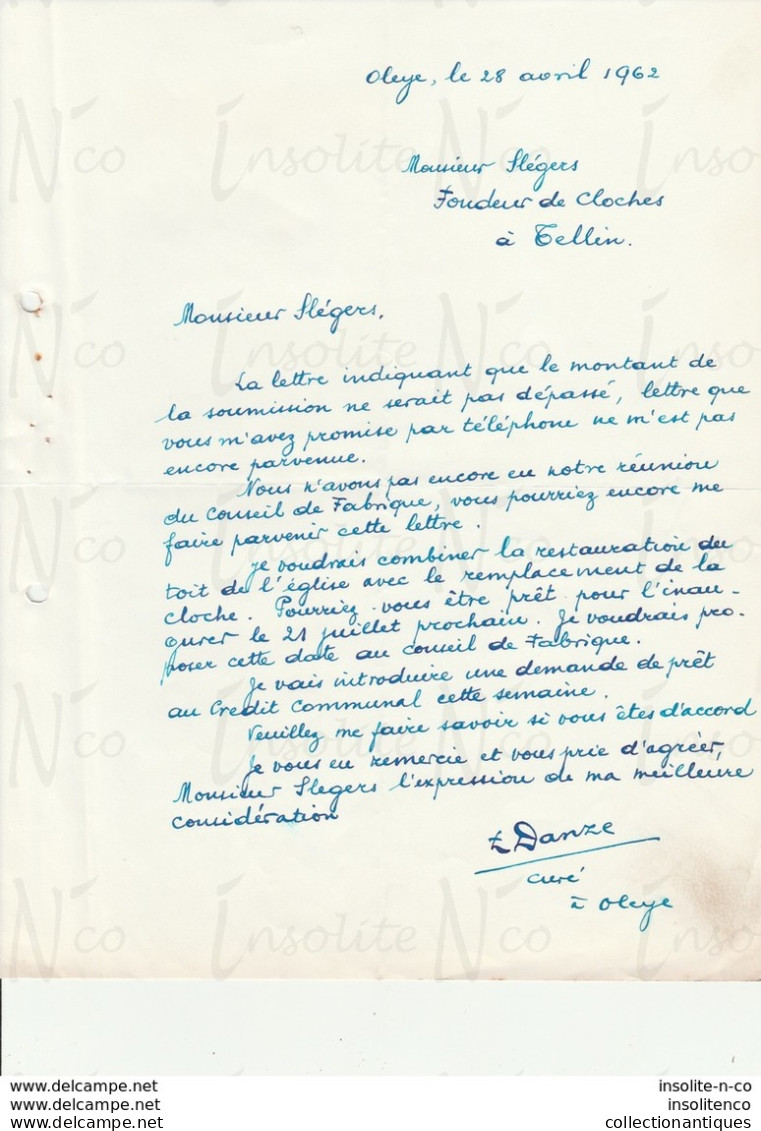 Oleye, le 28 avril 1962
Monsieur Slégers
Fondeur de Cloches
à Tellin.
Monsieur Slégers,
La lettre indiquant que le montant de
la soumission ne serait pas dépassé, lettre que
vous m'avez promise par téléphone ne m'est pas
encore parvenue.
Nous n'avons pas encore eu notre réunion
du Conseil de Fabrique, vous pourriez encore me
faire parvenir cette lettre.
Je voudrais combiner la restauration du
toit de l'église avec le remplacement de la
cloche. Pourriez-vous être prêt pour l'inau-
gurer le 21 juillet prochain. Je voudrais pro-
poser cette date au conseil de Fabrique.
Je vais introduire une demande de prêt
au Crédit Communal cette semaine.
Veuillez me faire savoir si vous êtes d'accord
Je vous en remercie et vous prie d'agréer,
Monsieur Slegers l'expression de ma meilleure
considération
Danze
curé
à Oleye
Insolite N'co
www.delcampe.net
www.delcampe.be
www.delcampe.fr
insolite-n-co
insolitenco
collectionantiques